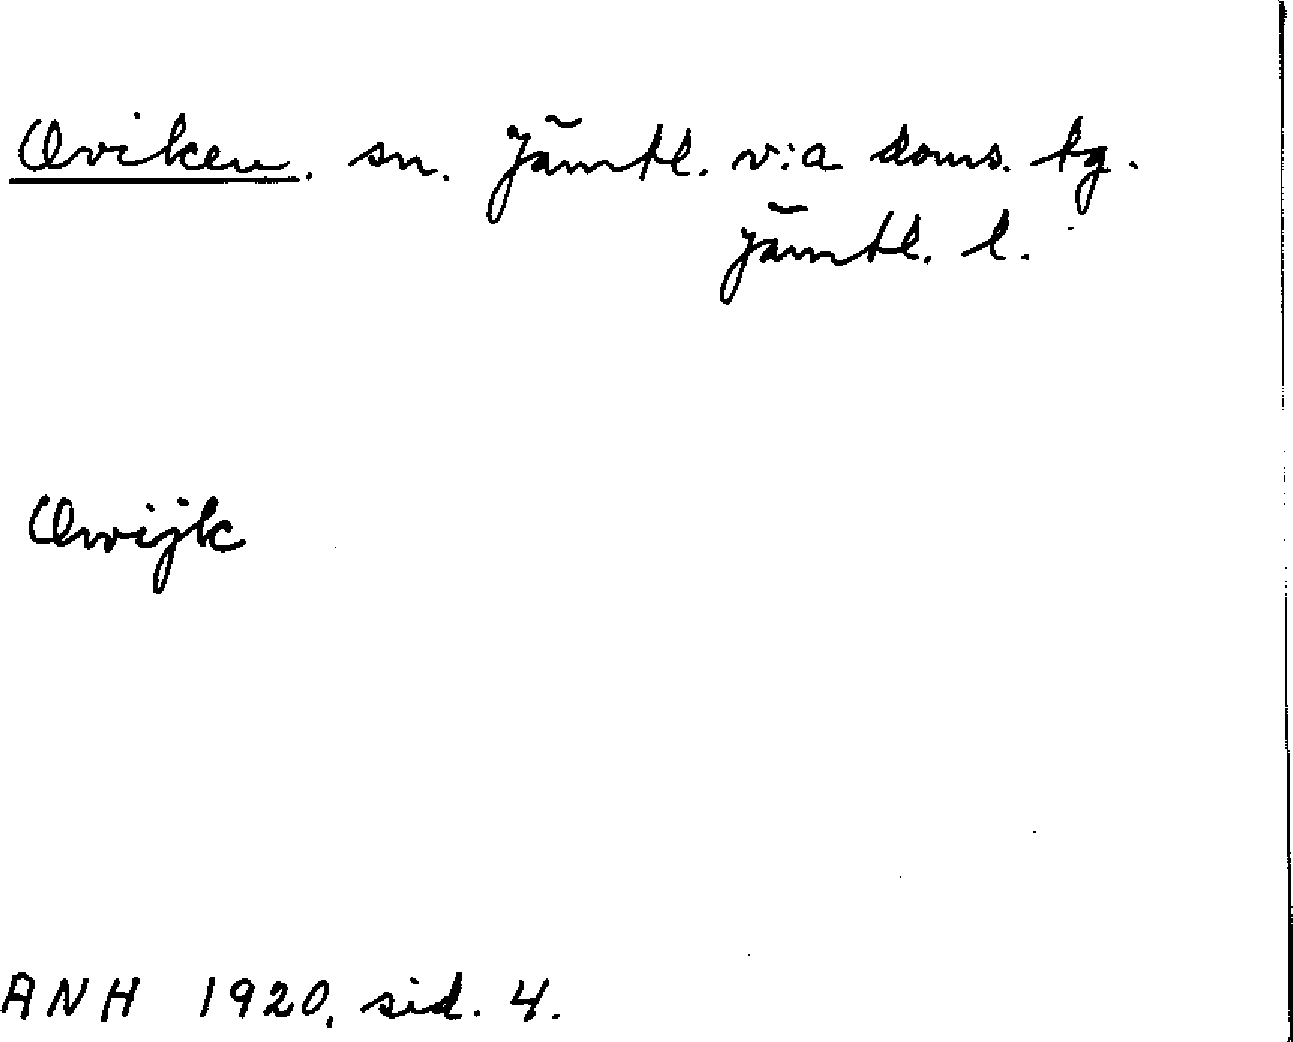 Oviken. sn. Jämtl. v:a doms. tg.
Jämtl. l.
Owijk
ANH 1920, sid. 4.